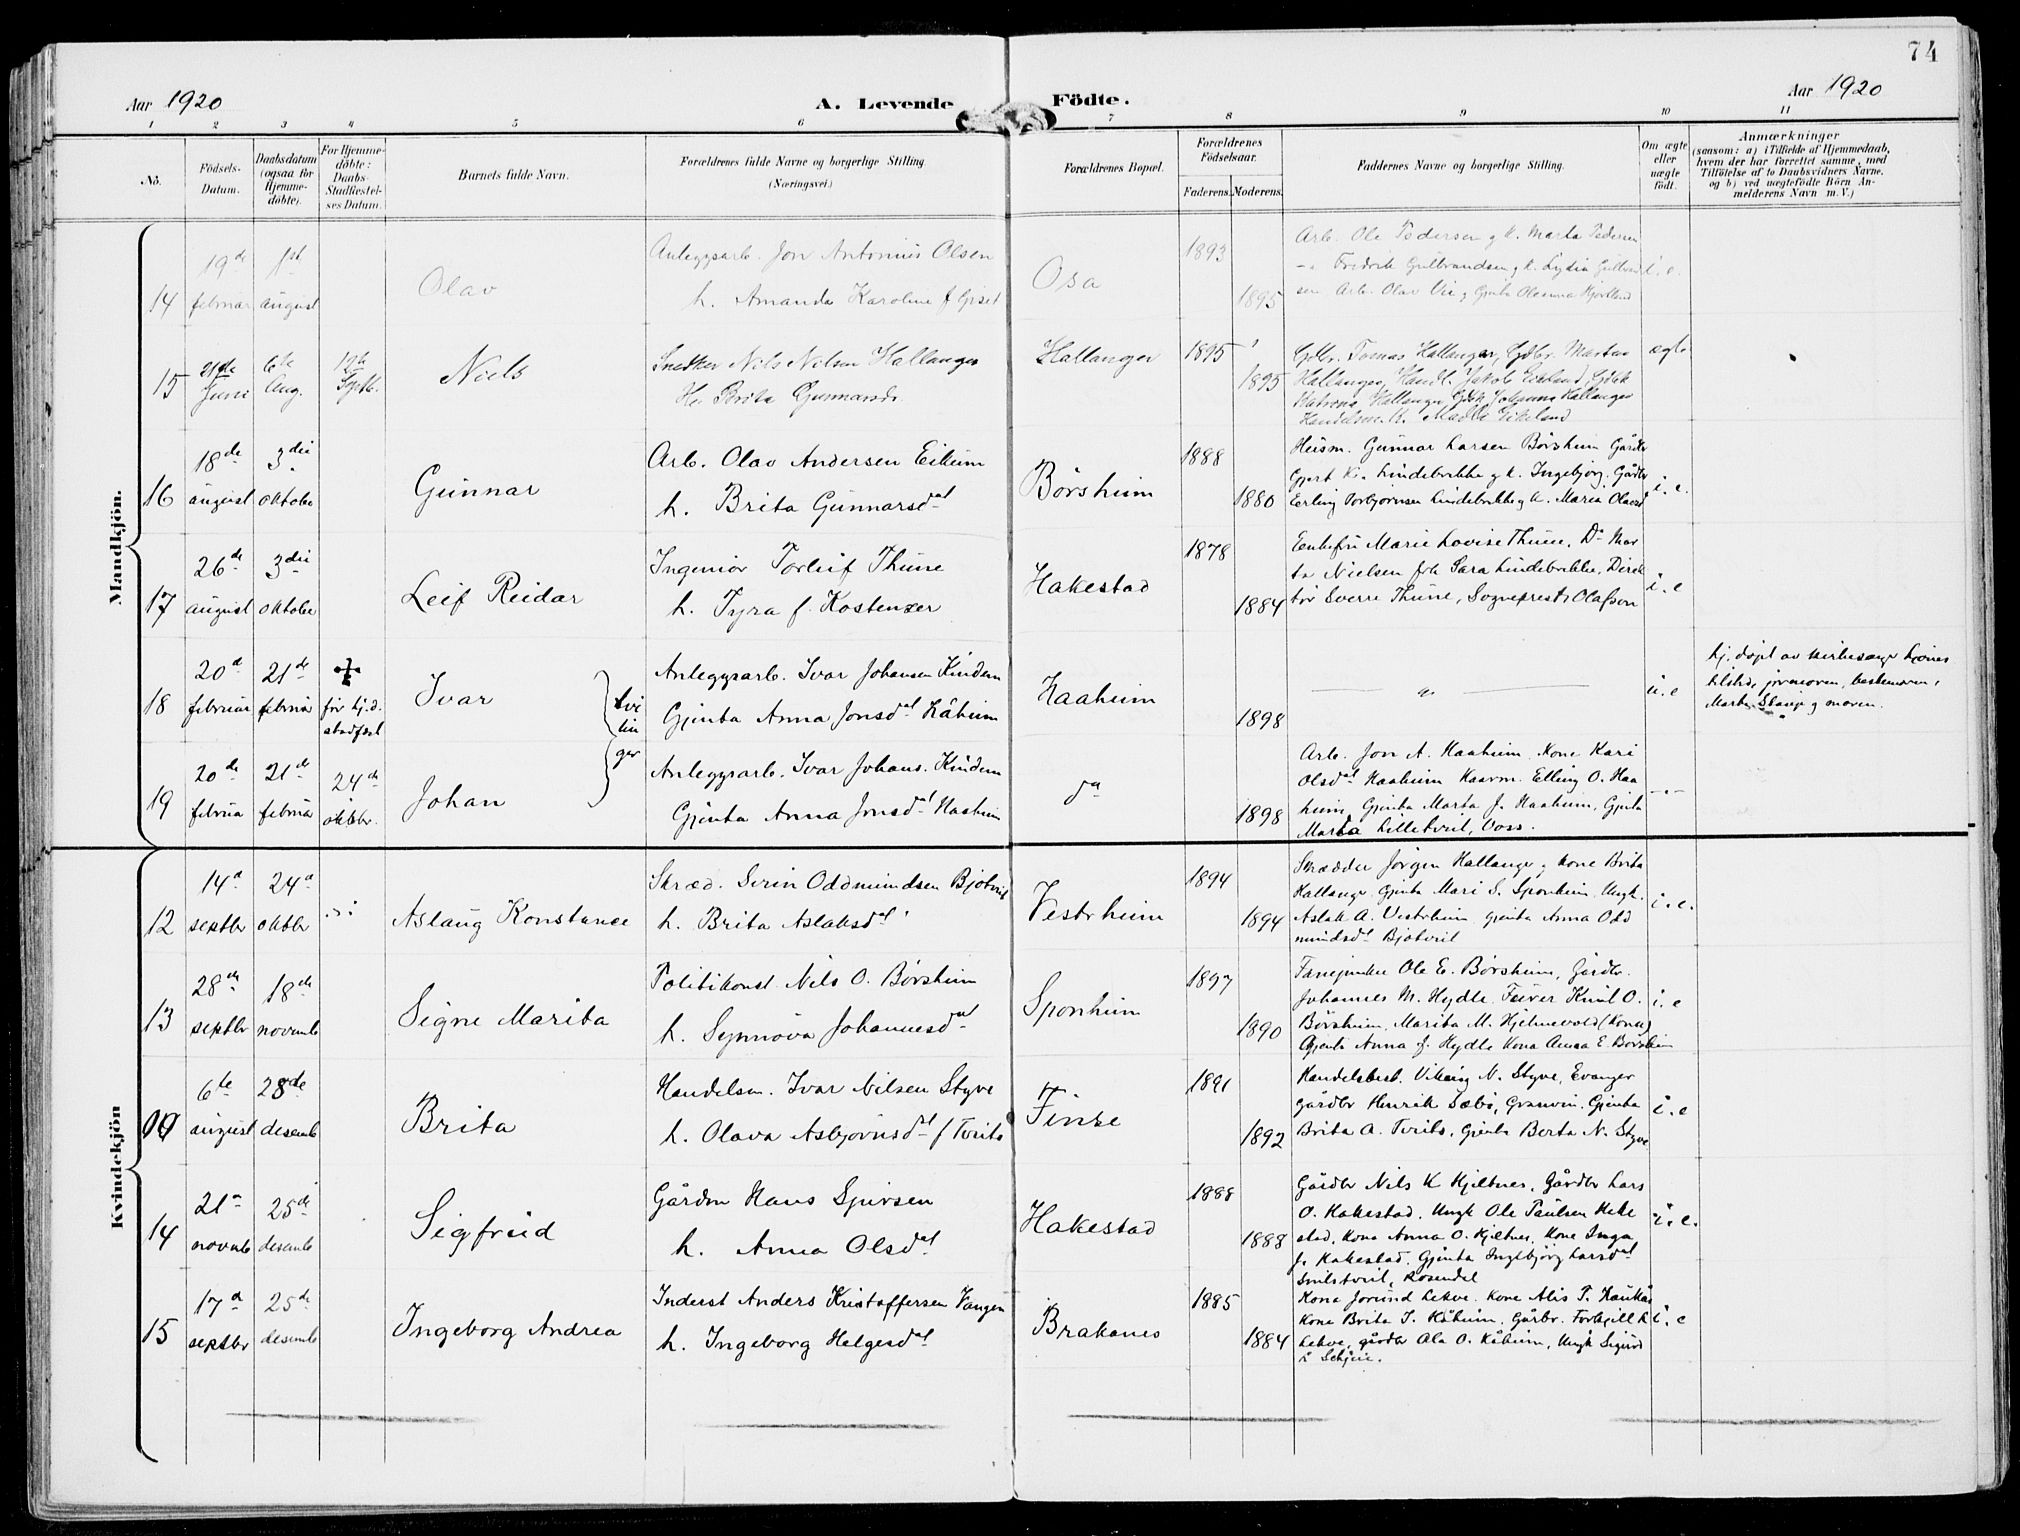 74
Aar 1920
A. Levende Födte.
Aar 1920
1 2 3 4 5 6 7 8 9 10 11
No.
Födsels-Datum.
Daabsdatum (ogsaa for Hjemme-döbte).
For Hjemme-döbte: Daabs-Stadfæstel-ses Datum.
Barnets fulde Navn.
Forældrenes fulde Navne og borgerlige Stilling.
(Næringsvei.)
Forældrenes Bopæl.
Forældrenes Födselsaar.
Faderens. Moderens.
Faddernes Navne og borgerlige Stilling.
Om ægte eller uægte födt.
Anmærkninger
(saasom: a) i Tilfælde af Hjemmedaab,
hvem der har forrettet samme, med
Tilföielse af to Daabsvidners Navne,
og b) ved uægtefödte Börn An-
melderens Navn m. V.)
Mandkjön.
14 19de februar 1st august Olav
Anleggsarb. Jon Antonius Olsen
h. Amanda Karoline f. Giset
Osa 1893 1895
Arb. Ole Pedersen g k. Marta Pedersen
Fredrik Gulbrandsen g k. Lydia Gulbrand
sen Arb. Olav
i. e.
15 21de Juni 6te Aug. 12te Septb. Niels
Snedker Nils Nilsen Hallanger
Hu Brita Gunnarsd.
Hallanger 1895 1895
Gdbr. Tomas Hallanger, Gdbr. Martin
Hallanger, Handl. Jakob Eikeland, Gdbk
Katrina Hallanger Gdbk Johanna Hallanger
Handelsm. K. Madli Eikeland
ægte
16 18de august 3die oktober Gunnar
Arb. Olav Andersen Eikum
h. Brita Gunnarsdat
Børsheim 1888 1880
Husm. Gunnar Larsen Børsheim Gårdbr
Gjert K. Lindebrekke g k. Ingebjørg. Gårdbr
Erling Torbjørnsen Lindebrekke g k. Maria Olavsd
i. e.
17 26de august 3die oktober Leif Reidar
Ingeniør Torleif Thune
h. Tyra f. Kostenzer
Hakestad 1878 1884
Enkefru Marie Lovise Thune, Do Mar
ta Nielsen frk Sara Lindebrekke, Direk
tør Sverre Thune, Sogneprest Olafson
i. e
18 20d februar 21de februar
før hj.d. stadfest
Ivar
Anleggsarb. Ivar Johansen Kindem
Gjenta Anna Jonsdat Håheim
tvi lin ger
Haaheim 1898
u. e
hj. døpt av kirkesanger
tilsted. jormoren, bestemoren,
Marta Skaieje g moren.
19 20de februa 21de februar 24de oktbr. Johan
Anleggsarb. Ivar Johans. Kindem
Gjenta Anna Jonsdat Haaheim
do 1898
Arb. Jon A. Haaheim Kone Kari
Olsdat Haaheim Kaarm. Elling O. Haa
heim, Gjenta Marta J. Haaheim, Gjenta
Marta Lilletveit, Voss.
Kvindekjön
12 14d septbr 24d oktbr Aslaug Konstance
Skræd. Sirin Oddmundsen Bjotveit
h. Brita Aslaksdat
Vestrheim 1894 1894
Skrædder Jørgen Hallanger g kone Brita
Hallanger. Gjenta Mari S. Sponheim. Ungk.
Aslak A. Vestrheim, gjenta Anna Odd
mundsdat Bjotveit
i. e.
13 28de septbr 18de novemb Signe Marita
Politikonst. Nils O. Børsheim
h. Synnøva Johannesdat
Sponheim 1897 1890
Fanejunker Ole E. Børsheim, Gårdbr.
Johannes M. Hydle. Furer Knut O.
Børsheim, Marita M. Hjelmevold (Kona)
Gjenta Anna J. Hydle Kona Anna E. Børsheim
i. e
6te august 28de desemb Brita
Handelsm. Ivar Nilsen Styve
h. Olava Asbjørnsdat f Tveito
Finse 1891 1892
Handelsbest. Viking N. Styve, Evanger
gårdbr Henrik Sæbø, Granvin. Gjenta
Brita A. Tveito, Gjenta Berta N. Styve
i. e
14 21d novmb 25de desemb Sigfrid
Gårdm Hans Sjursen
h. Anna Olsdat
Hakestad 1888 1888
Gårdbr Nils K Kjeltnes, Gårdbr Lars
O. Hakestad. Ungk Ole Paulsen Hake
stad, Kona Anna O. Kjeltnes, Kone Inga
J. Hakestad. Gjenta Ingebjørg Larsdat
Smilstveit, Rosendal
i. e.
15 17d septbr 25de desemb Ingeborg Andrea
Inderst Anders Kristoffersen Vangen
h. Ingeborg Helgesdat
Brakanes 1885 1884
Kona Jorund Lekve. Kone Alis T. Haukås
Kone Brita I. Håheim. Gårbr. Torkjell K
Lekve, gårdbr Ola O. Håheim, Ungk Sigurd
i. e